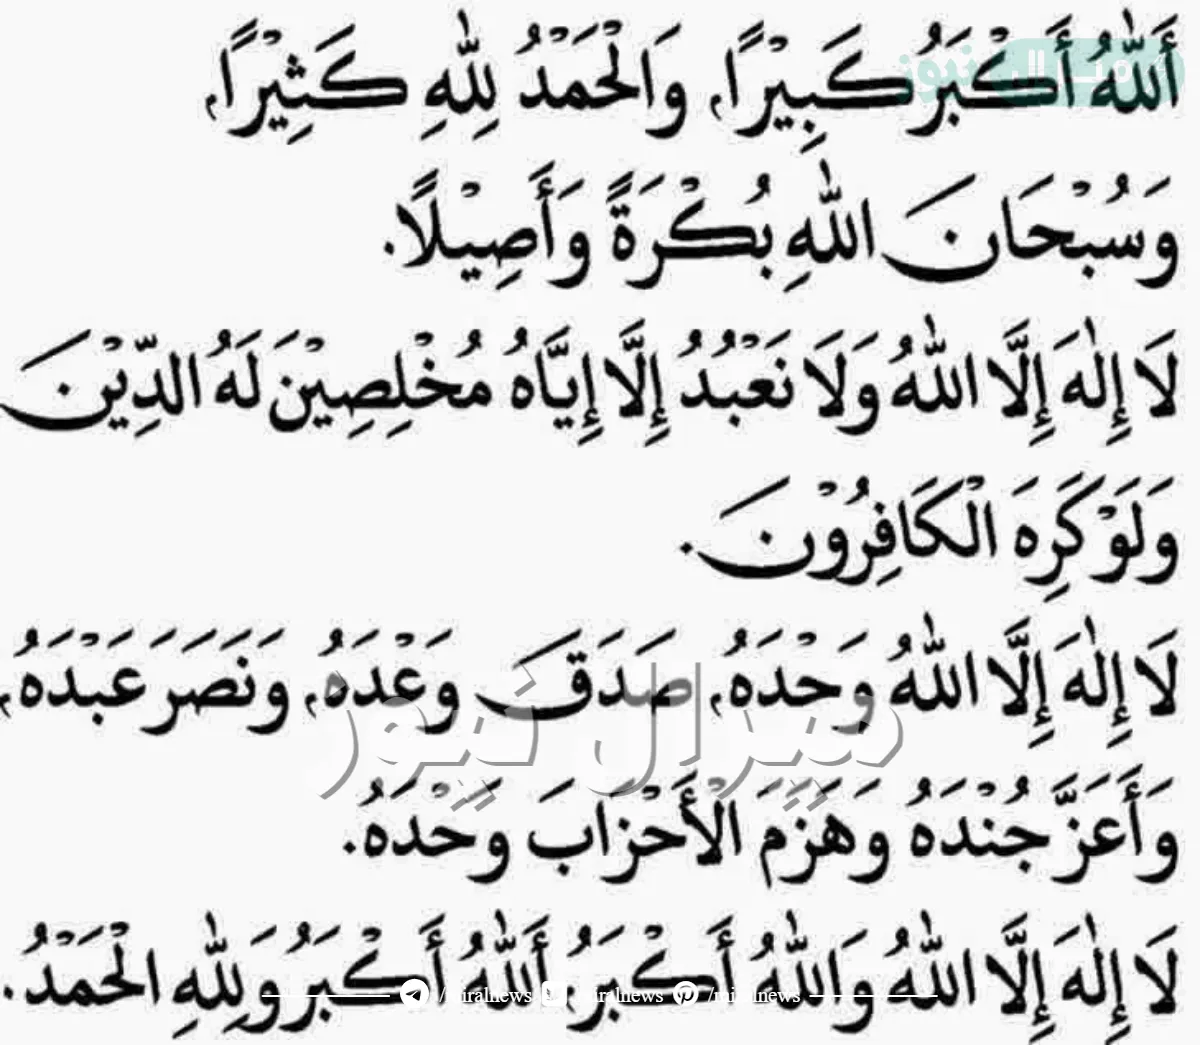 أَللّٰهُ أَكْبَرُ كَبِيْرًا، وَالْحَمْدُ لِلّٰهِ كَثِيْرًا،
وَسُبْحَانَ اللّٰهِ بُكْرَةً وَأَصِيْلًا.
لَا إِلٰهَ إِلَّا اللّٰهُ وَلَا نَعْبُدُ إِلَّا إِيَّاهُ مُخْلِصِيْنَ لَهُ الدِّيْنَ
وَلَوْ كَرِهَ الْكَافِرُوْنَ.
لَا إِلٰهَ إِلَّا اللّٰهُ وَحْدَهُ، صَدَقَ وَعْدَهُ، وَنَصَرَ عَبْدَهُ،
وَأَعَزَّ جُنْدَهُ وَهَزَمَ الْأَحْزَابَ وَحْدَهُ.
لَا إِلٰهَ إِلَّا اللّٰهُ وَاللّٰهُ أَكْبَرُ أَللّٰهُ أَكْبَرُ وَلِلّٰهِ الْحَمْدُ.
ميرال نيوز
/miralnews /miralnews /miralnews